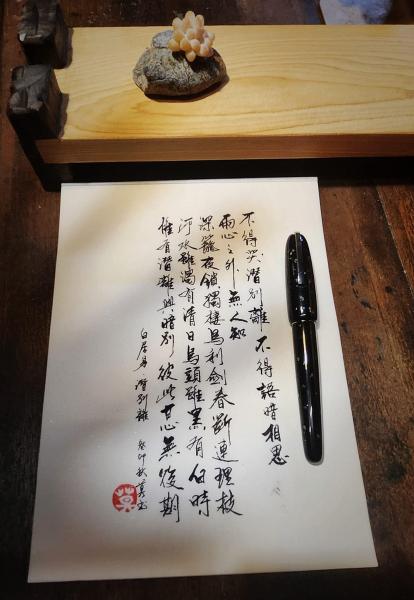 不得哭 潛別離 不得語 暗相思
兩心之外無人知
深籠夜鎖獨棲鳥 利劍春斷連理枝
河水雖濁有清日 烏頭雖黑有白時
惟有潛離與暗別 彼此甘心無後期
白居易 潛別離 癸卯秋